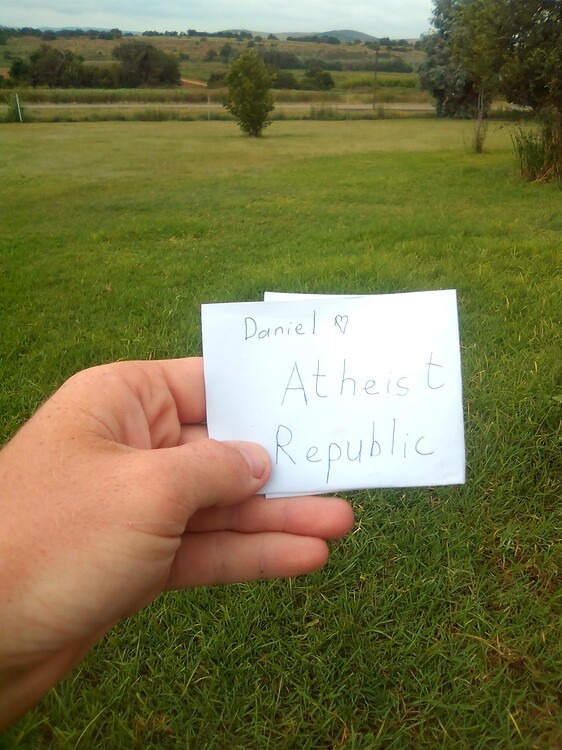 Daniel ♡
Atheist
Republic